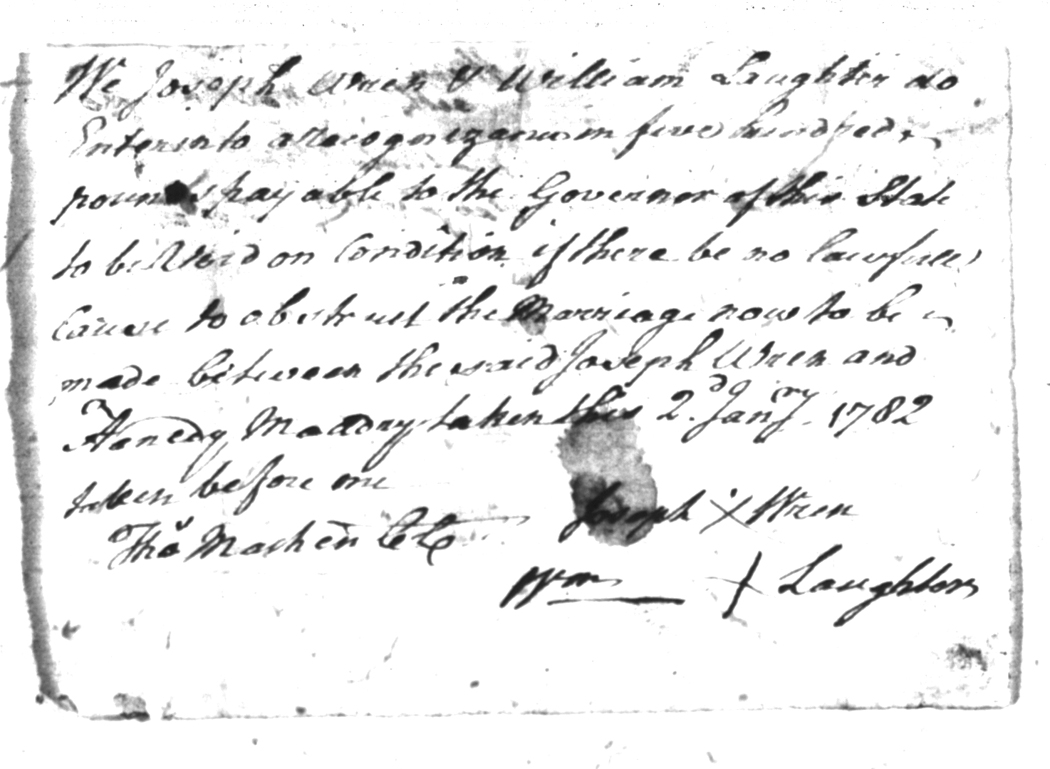 We Joseph Wren & William Laughter do
Enter into a Recognizance in five hundred
pounds payable to the Governor of this State
to be Void on Condition if there be no lawfull
Cause to obstruct the Marriage now to be
made between the said Joseph Wren and
taken this 2d Janry 1782
taken before me
Joseph X Wren
Tho Machen
Wm X Laughter